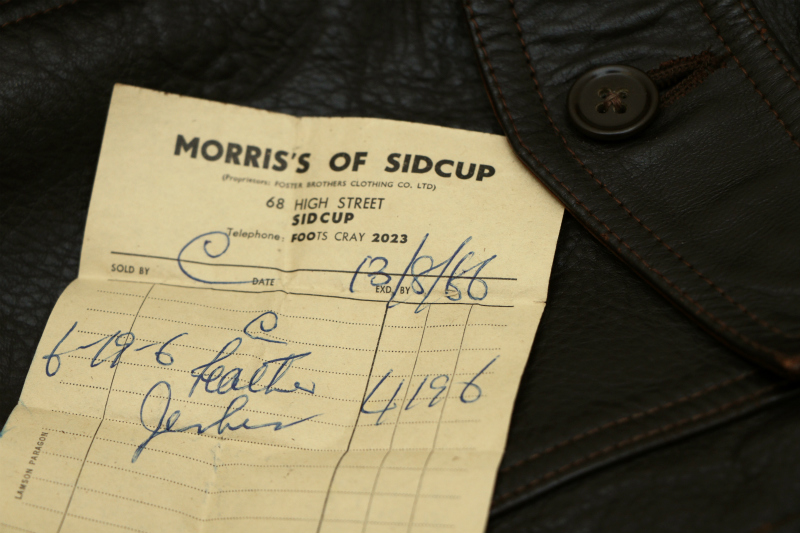 MORRIS'S OF SIDCUP
(Proprietors: FOSTER BROTHERS CLOTHING CO. LTD)
68 HIGH STREET
SIDCUP
Telephone: FOOTS CRAY 2023
SOLD BY C DATE 13/8/66 EXD. BY
C
6-19-6 Leather 4 19 6
Jerkin
LAMSON PARAGON